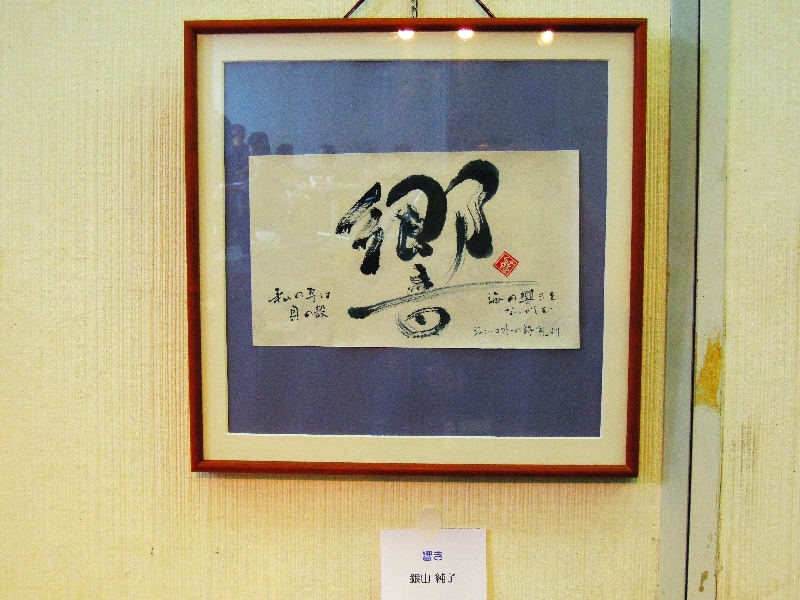 響
私の耳は
貝の殻
海の響きを
なつかしむ
ジャン・コクトーの詩
響き
銀山 純子